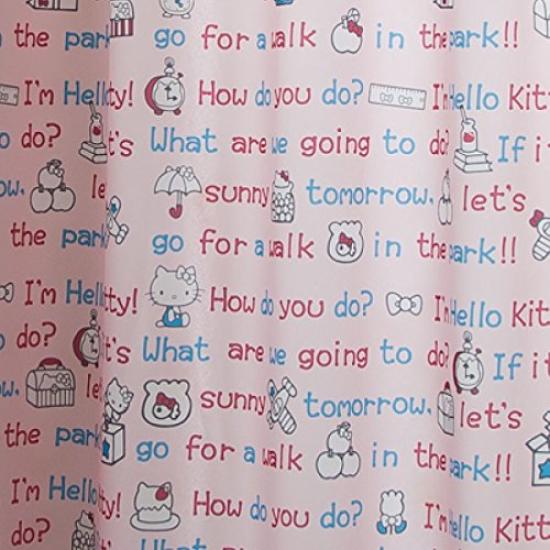 the park go for a walk in the park!!
I'm Hello Kitty! How do you do? I'm Hello Kitt
o do? t's What are we going to do? If i
ow. le sunny tomorrow, let's
the park go for a walk in the park!!
I'm Hello Kitty! How do you do? I'm Hello Kitt
o do? t's What are we going to do? If it
ow. le sunny tomorrow, let's
the park go for a walk in the park!!
I'm Hello Kitty! How do you do? I'm Hello Kitt
do? t's What are we going to do? If it